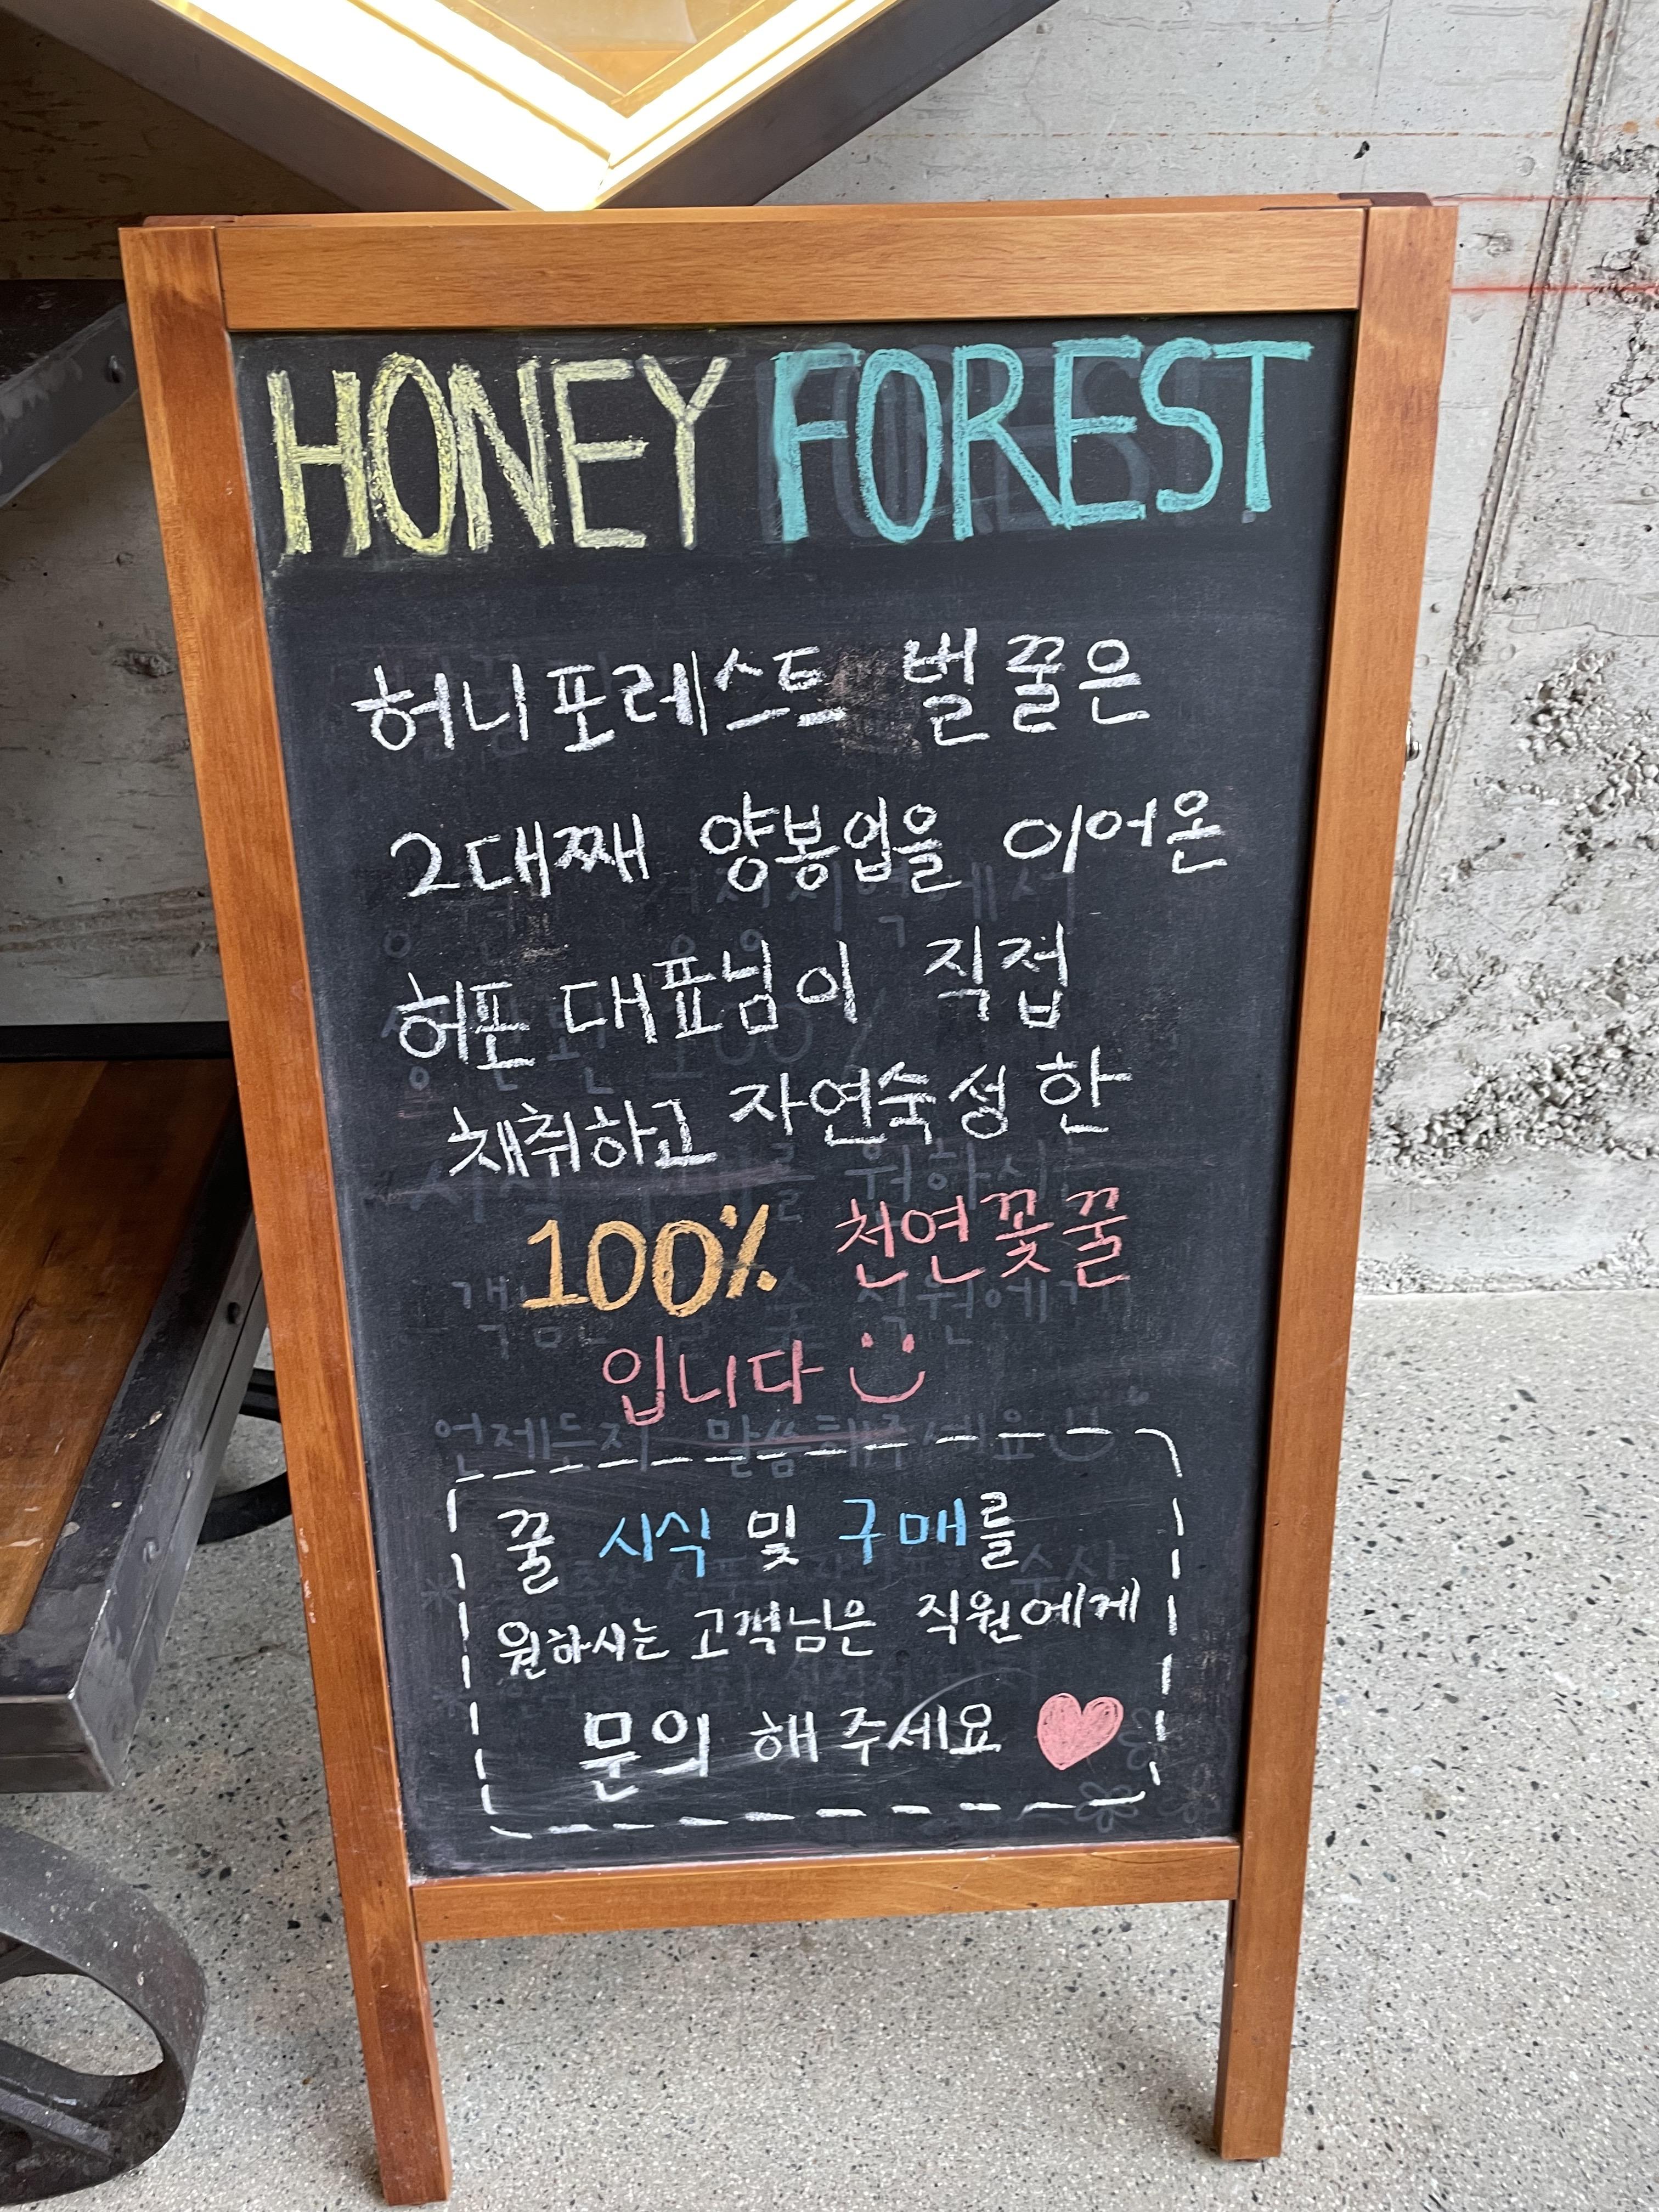 HONEY FOREST
허니포레스트 벌꿀은
2대째 양봉업을 이어온
허폰 대표님이 직접
채취하고 자연숙성 한
100% 천연꽃꿀
입니다
언제든지 말씀해주세요
꿀 시식 및 구매를
원하시는 고객님은 직원에게
문의 해주세요